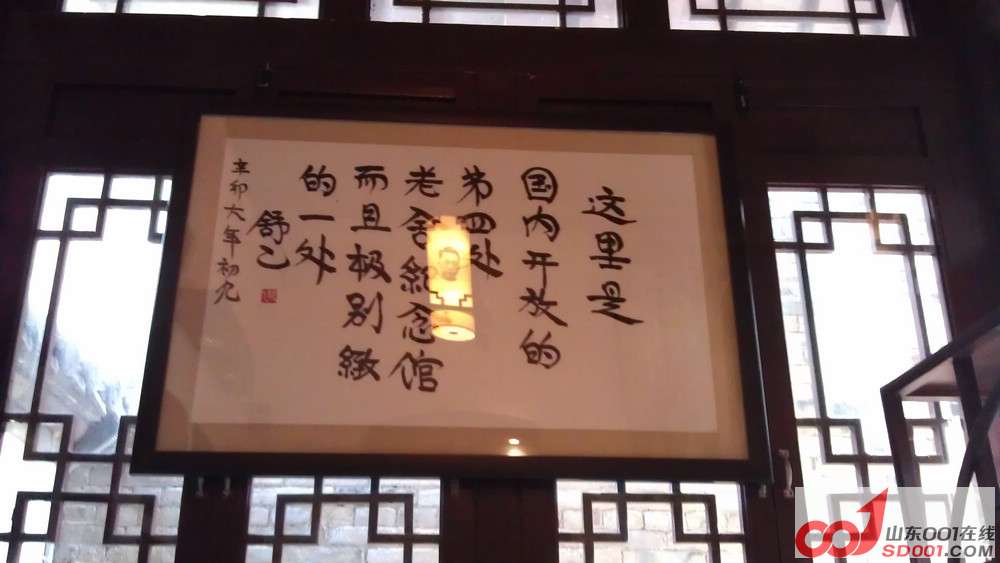 这里是
国内开放的
第四处
老舍纪念馆
而且极别緻
的一处
舒乙
辛卯大年初九
山东001在线
SD001.COM